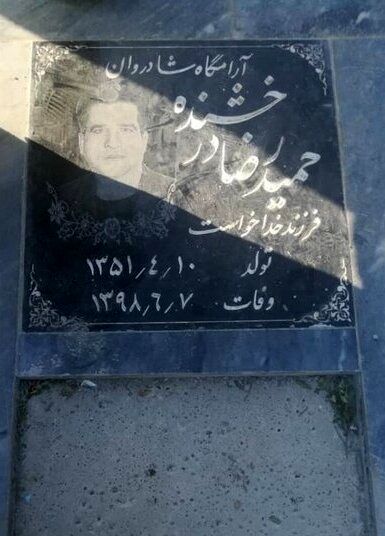 آرامگاه شادروان
حمیدرضا درخشنده
فرزند خداخواست
تولد ۱۳۵۱٫۴٫۱۰
وفات ۱۳۹۸٫۶٫۷